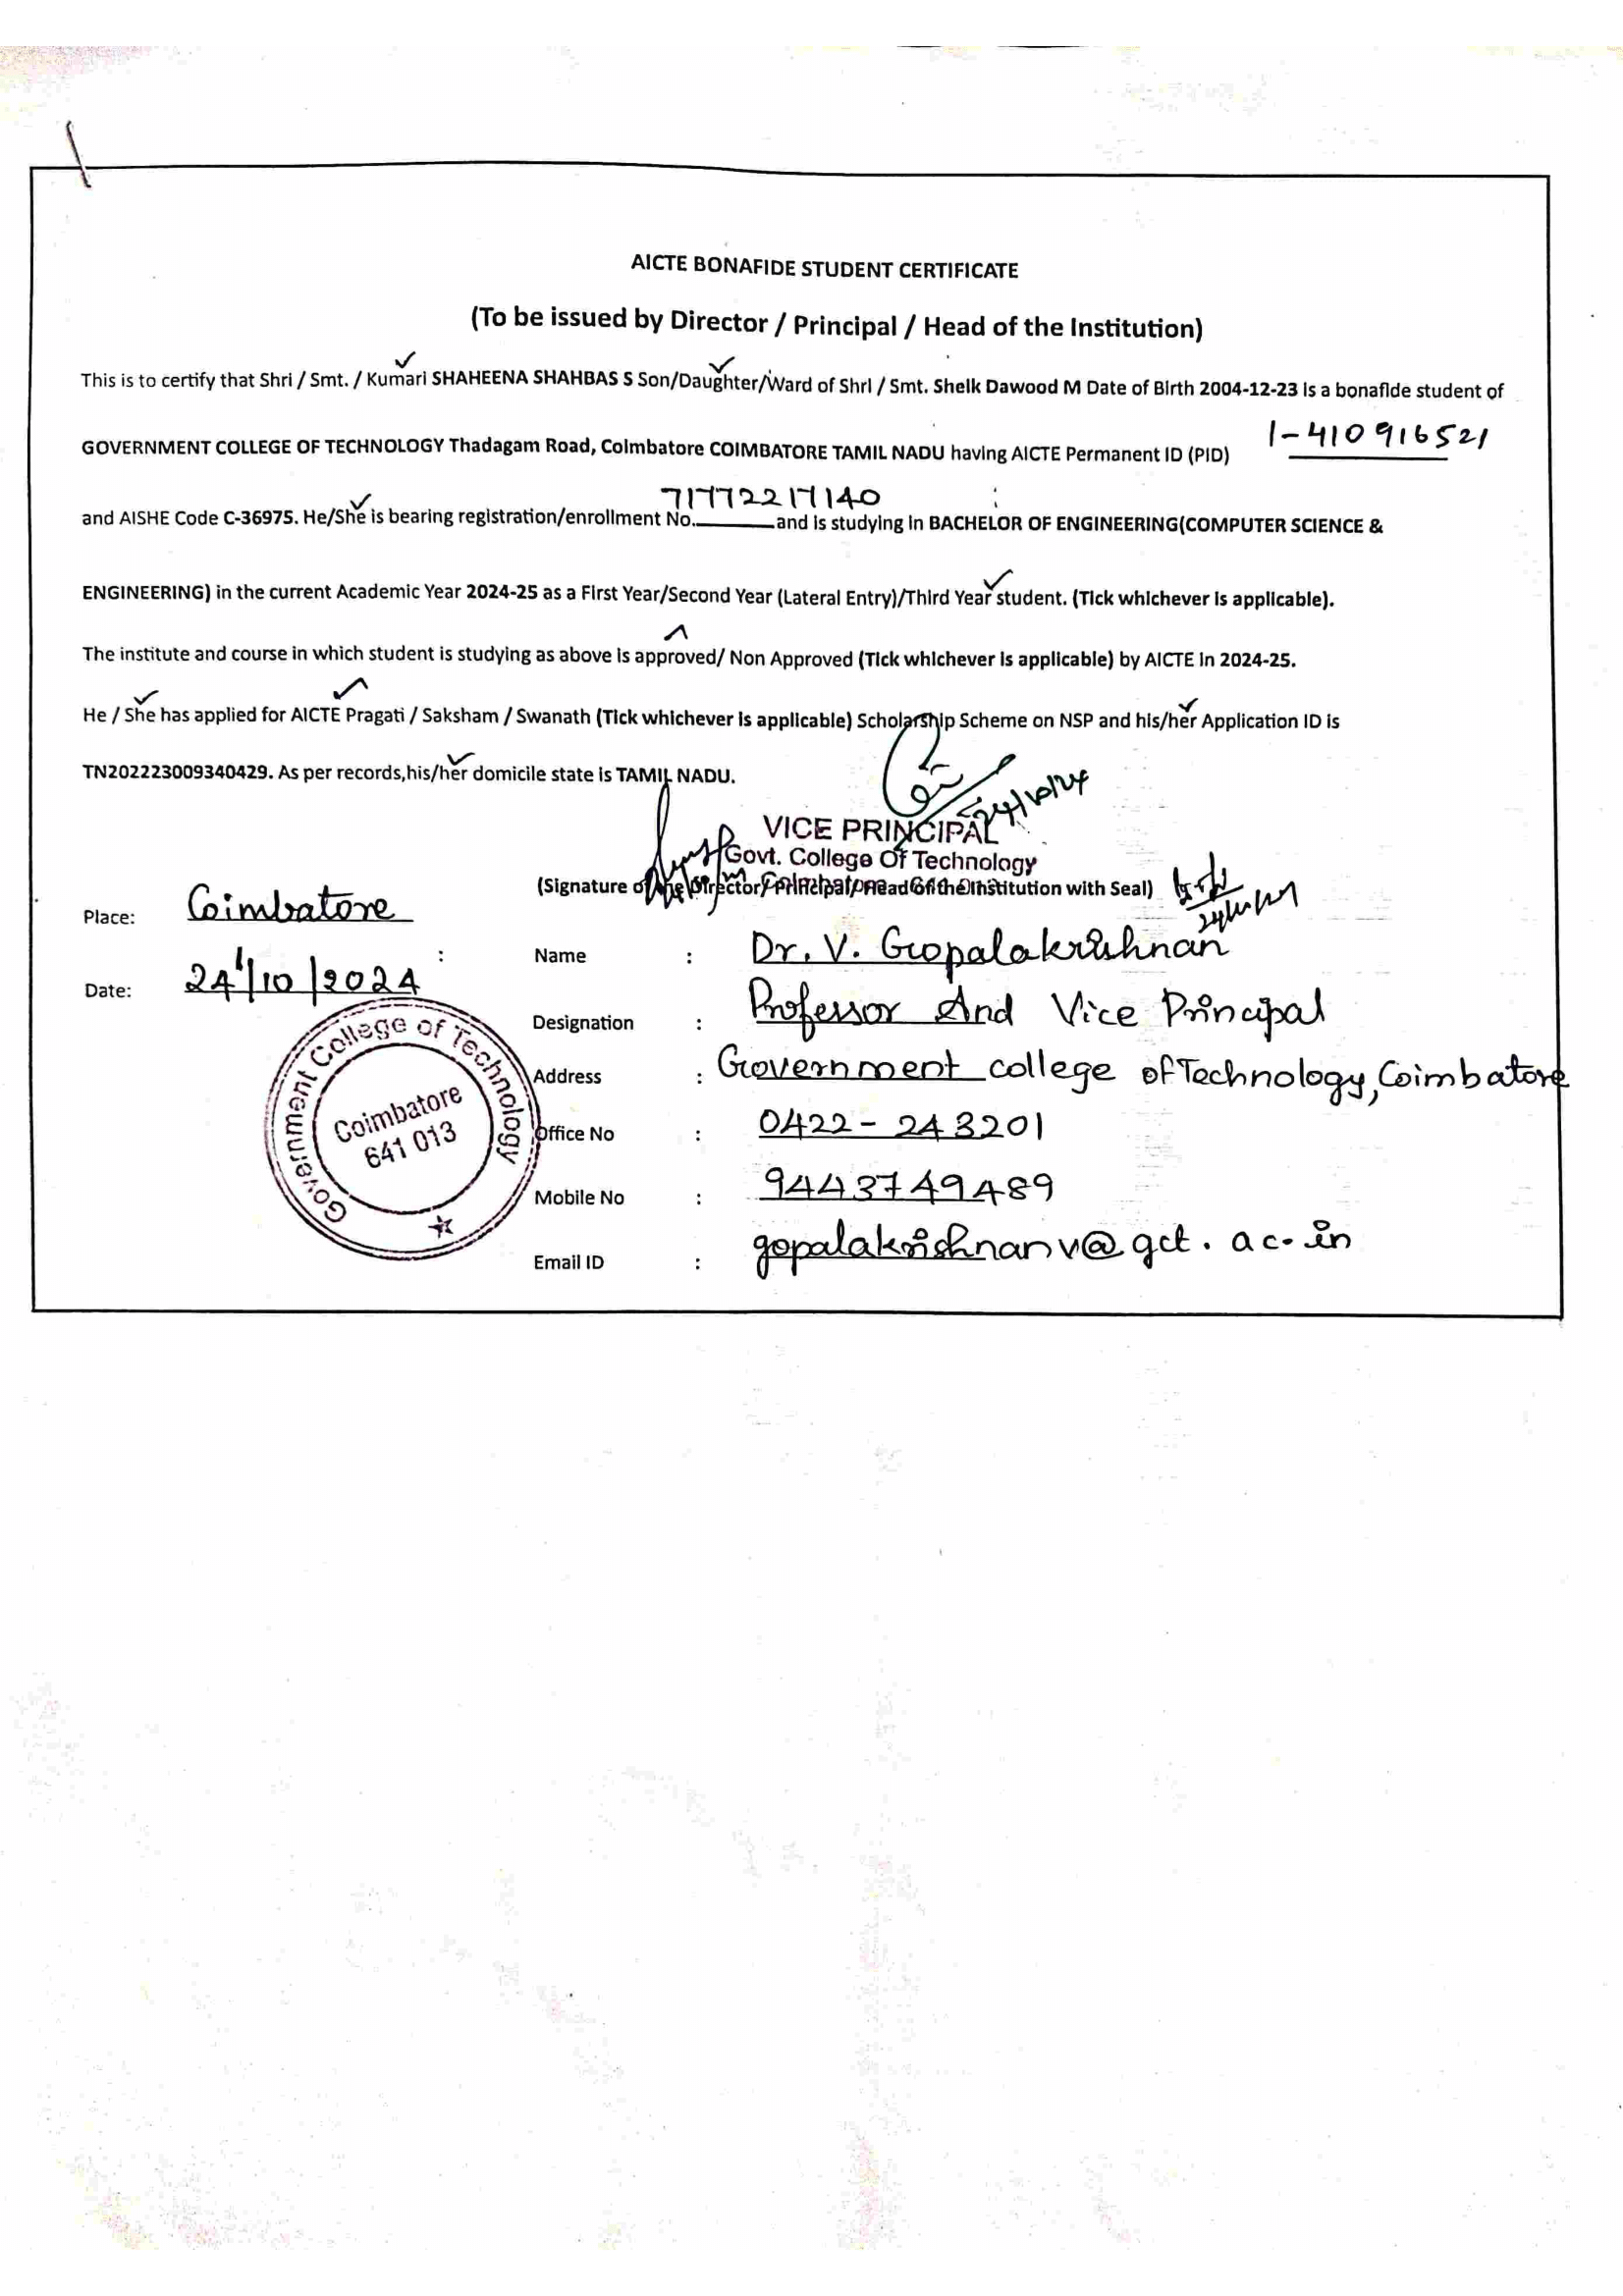 AICTE BONAFIDE STUDENT CERTIFICATE
(To be issued by Director / Principal / Head of the Institution)
This is to certify that Shri / Smt. / Kumari SHAHEENA SHAHBAS S Son/Daughter/Ward of Shri / Smt. Sheik Dawood M Date of Birth 2004-12-23 is a bonafide student of
GOVERNMENT COLLEGE OF TECHNOLOGY Thadagam Road, Coimbatore COIMBATORE TAMIL NADU having AICTE Permanent ID (PID) 1-410916521
and AISHE Code C-36975. He/She is bearing registration/enrollment No. 71772217140 and is studying in BACHELOR OF ENGINEERING(COMPUTER SCIENCE &
ENGINEERING) in the current Academic Year 2024-25 as a First Year/Second Year (Lateral Entry)/Third Year student. (Tick whichever is applicable).
The institute and course in which student is studying as above is approved/ Non Approved (Tick whichever is applicable) by AICTE in 2024-25.
He / She has applied for AICTE Pragati / Saksham / Swanath (Tick whichever is applicable) Scholarship Scheme on NSP and his/her Application ID is
TN202223009340429. As per records,his/her domicile state is TAMIL NADU.
24/10/24
VICE PRINCIPAL
Govt. College Of Technology
(Signature of the Director/ Principal/ Head of the Institution with Seal)
Place: Coimbatore
Date: 24/10/2024
Name : Dr. V. Gopalakrishnan
Designation : Professor And Vice Principal
Address : Government college of Technology, Coimbatore
Office No : 0422 - 243201
Mobile No : 9443749489
Email ID : gopalakrishnanv@gct.ac.in
Government College of Technology
Coimbatore
641 013